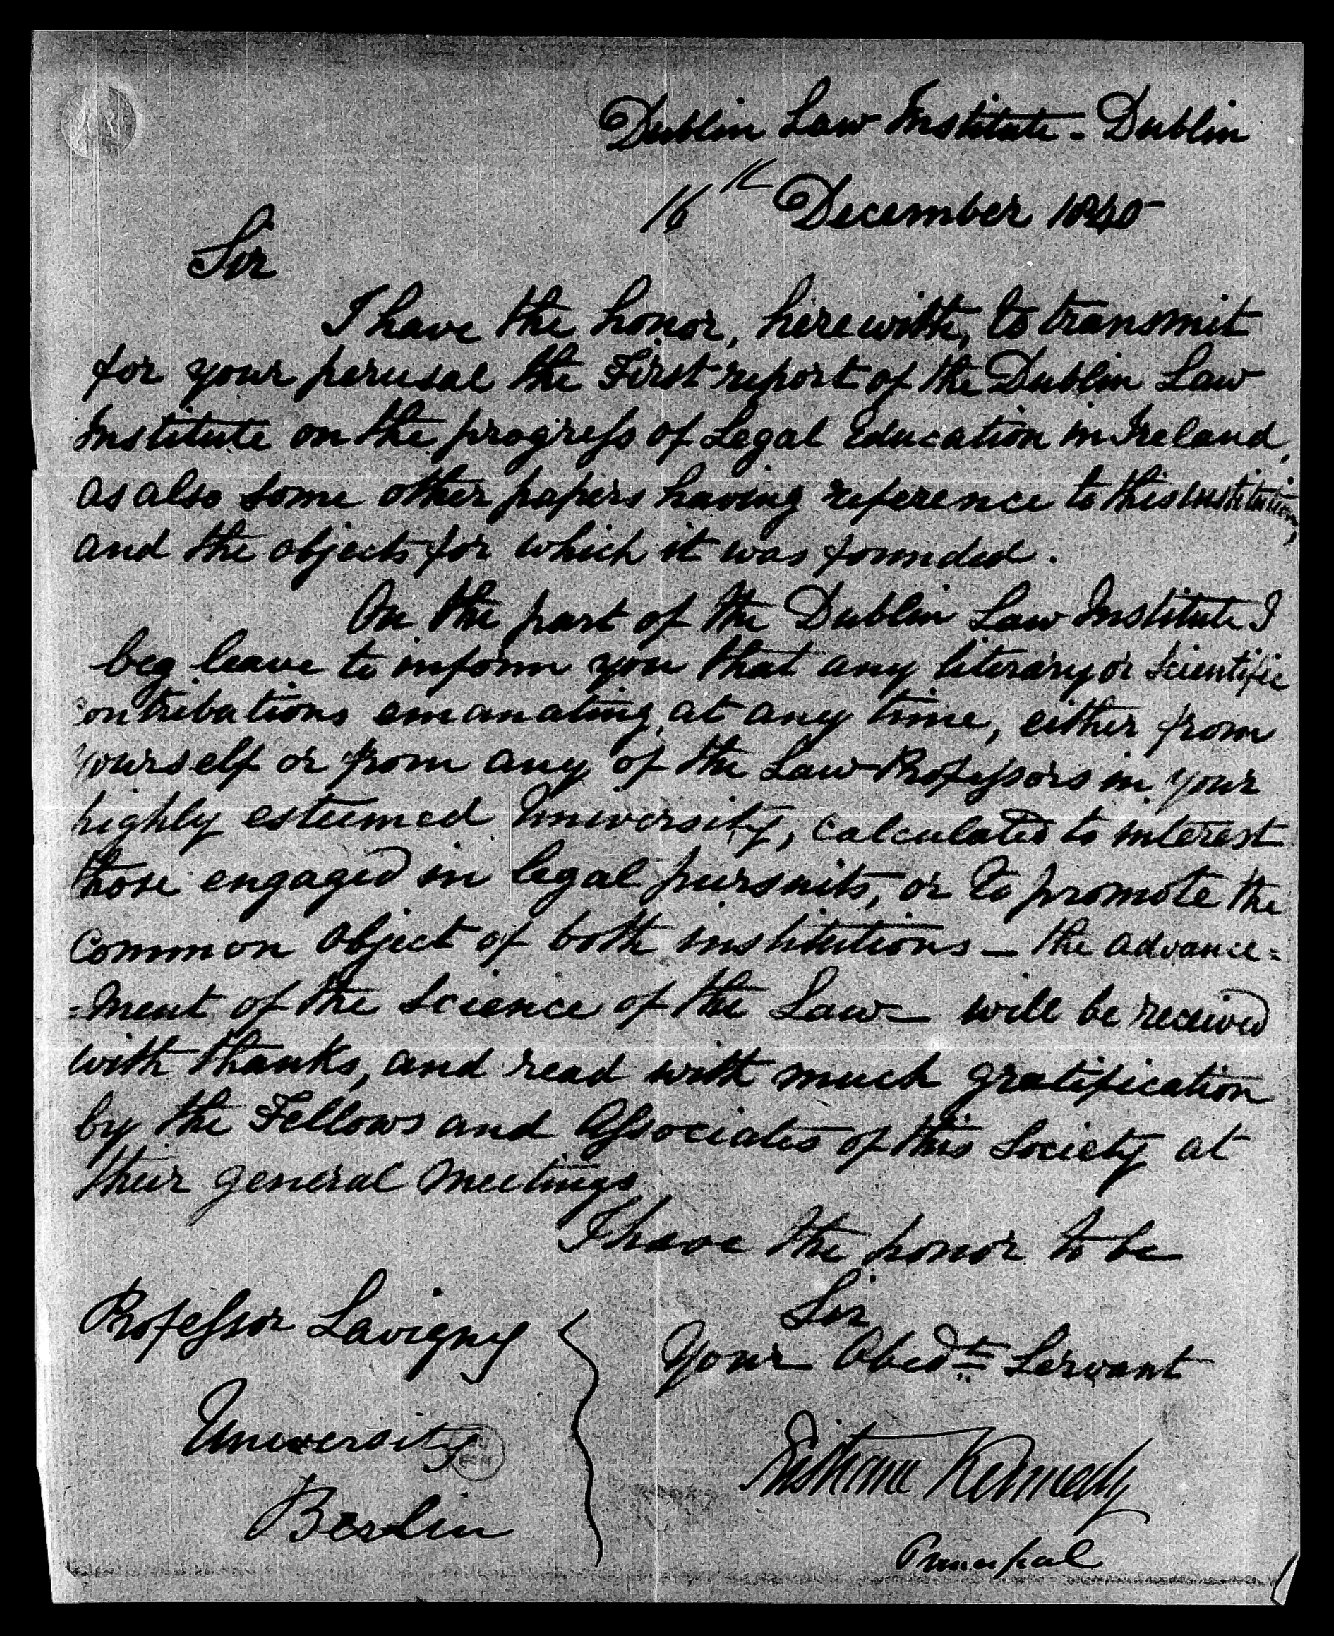 Dublin Law Institute - Dublin
16th December 1840
Sir
I have the honor, herewith, to transmit
for your perusal the First report of the Dublin Law
Institute on the progress of Legal Education in Ireland,
as also some other papers having reference to this institution,
and the objects for which it was founded.
On the part of the Dublin Law Institute I
beg leave to inform you that any literary or scientific
contributions emanating, at any time, either from
yourself or from any of the Law Professors in your
highly esteemed University, calculated to interest
those engaged in legal pursuits, or to promote the
common object of both institutions — the advance=
=ment of the science of the Law — will be received
with thanks, and read with much gratification
by the Fellows and Associates of this Society at
their general meetings
I have the honor to be
Sir
Your Obedt. Servant
Tristram Kennedy
Principal
Professor Savigny
University
Berlin